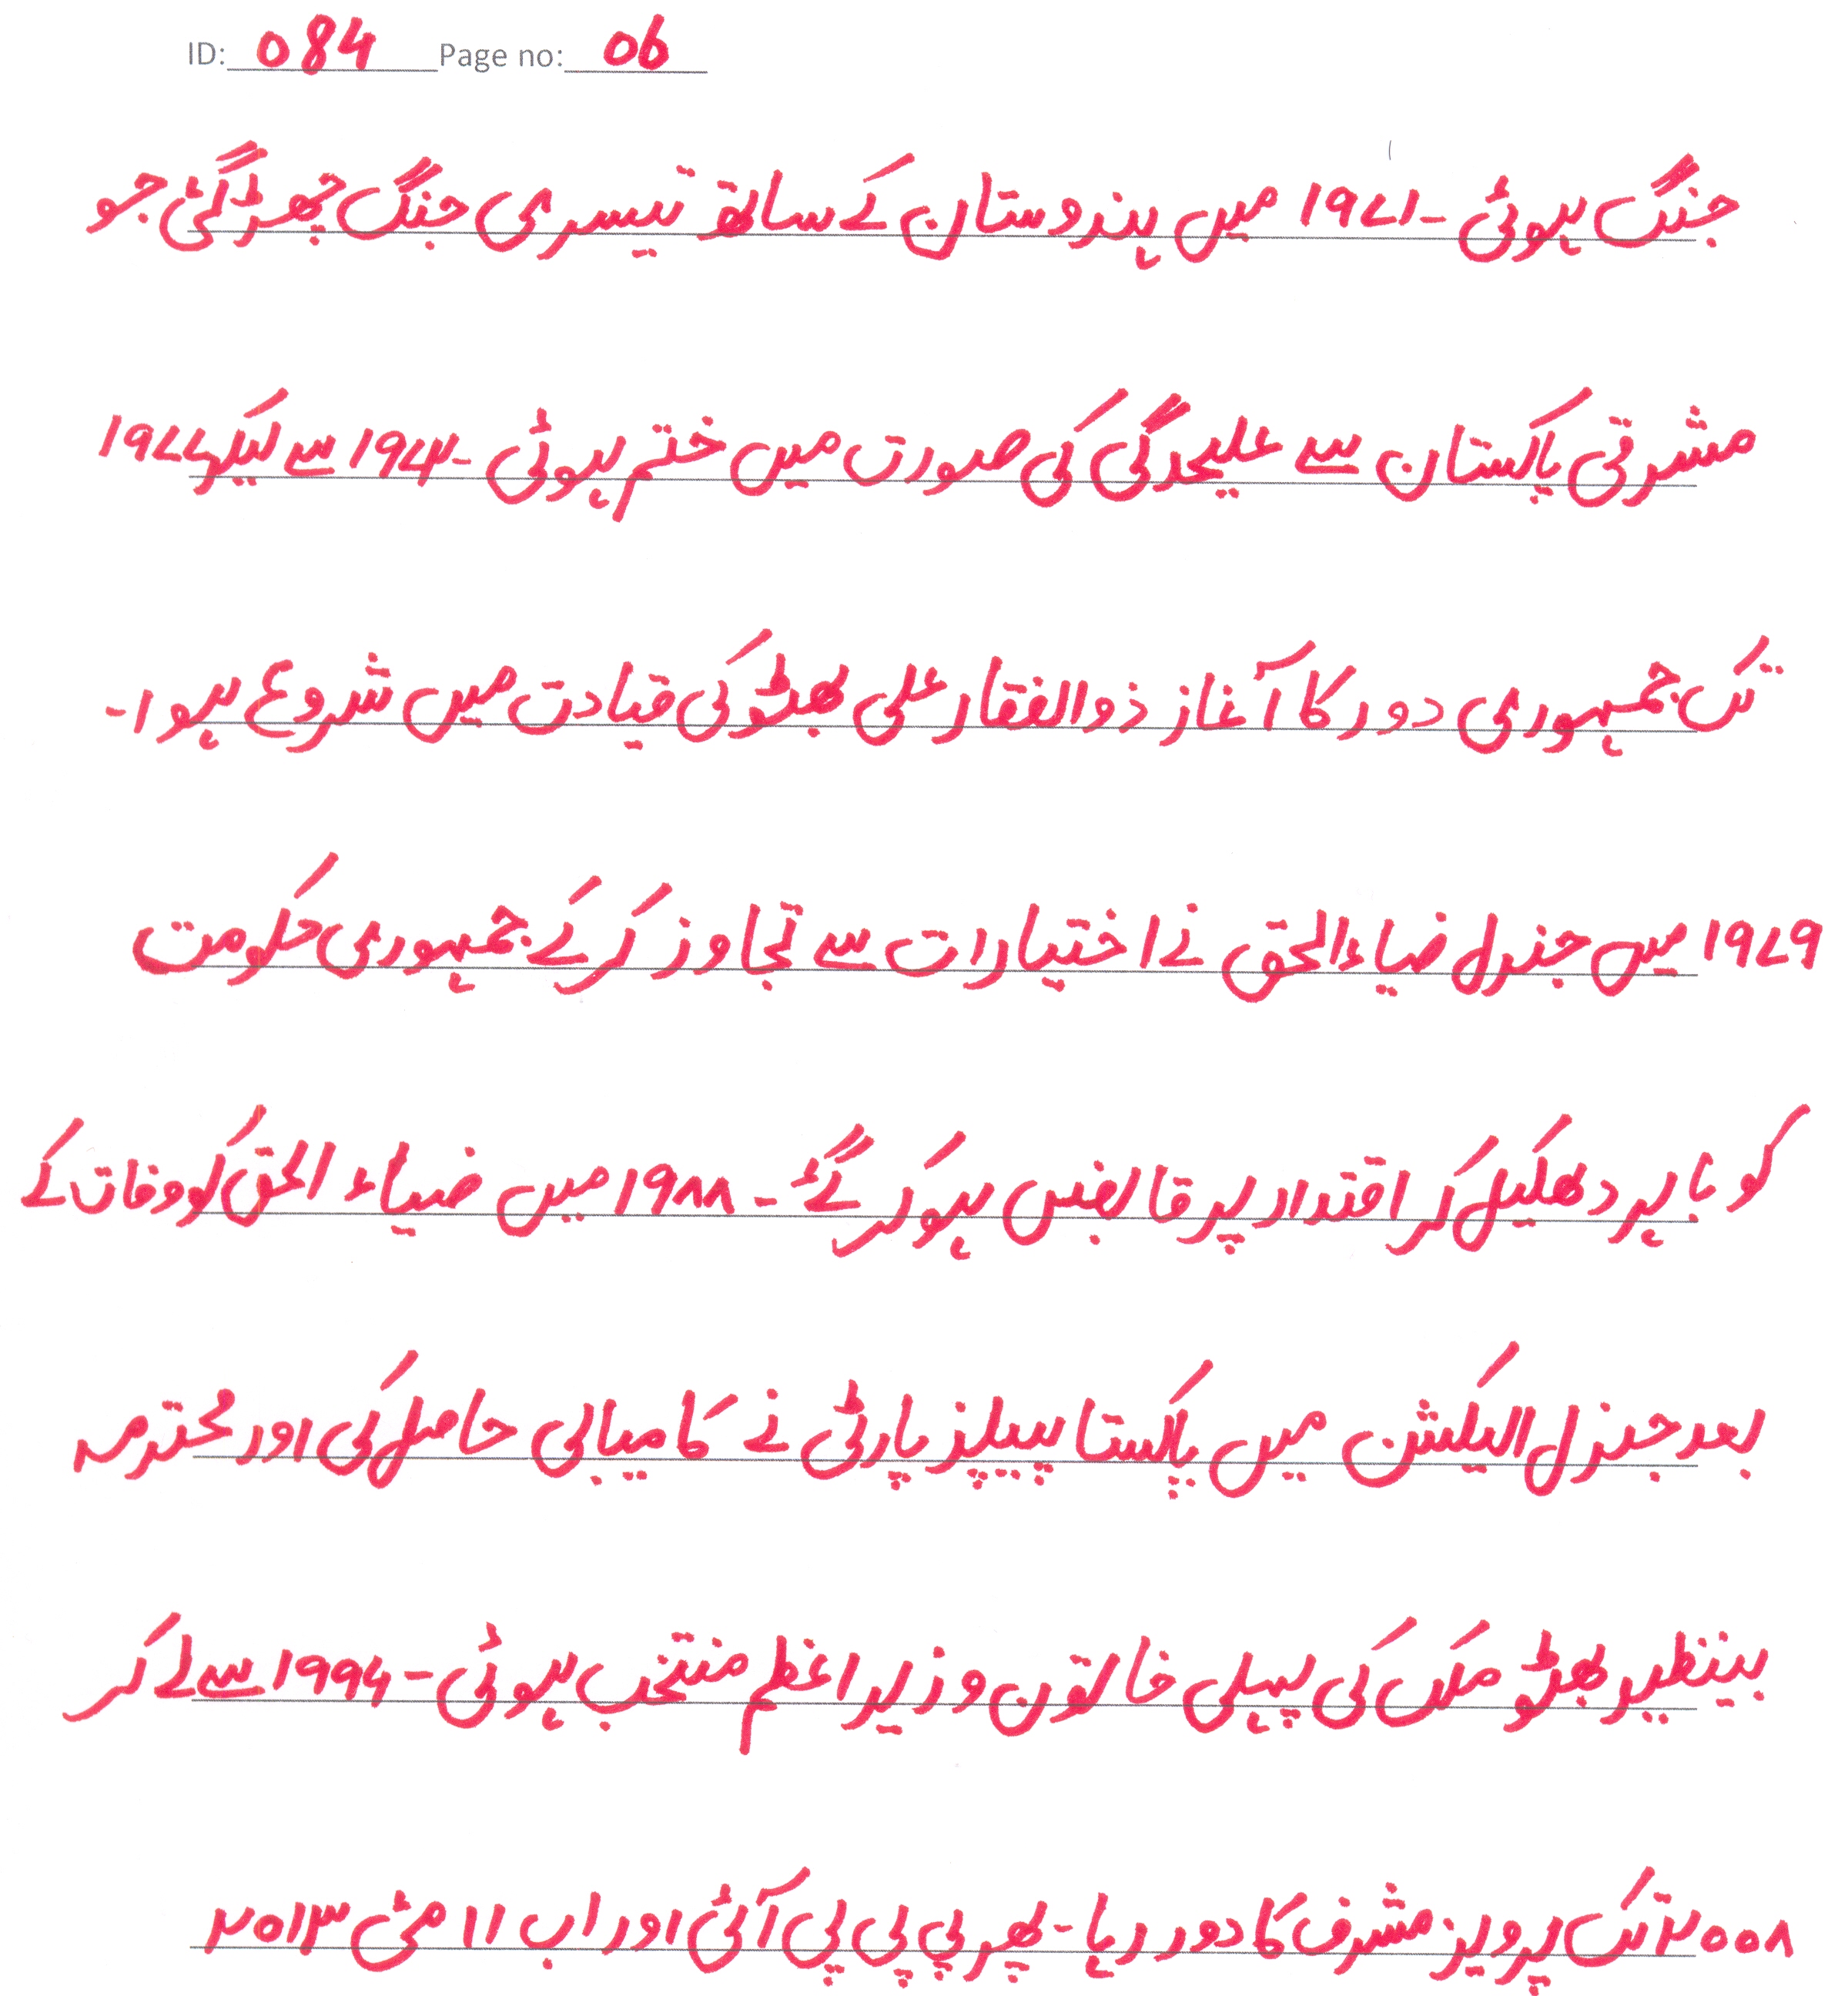 ID: 084 Page no: 06
جنگ ہوئی۔ ۱۹۷۱ میں ہندوستان کے ساتھ تیسری جنگ چھڑ گئی جو
مشرقی پاکستان سے علیحدگی کی صورت میں ختم ہوئی۔ ۱۹۷۲ سے لیکر ۱۹۷۷
تک جمہوری دور کا آغاز ذوالفقار علی بھٹو کی قیادت میں شروع ہوا۔
۱۹۷۹ میں جنرل ضیاء الحق نے اختیارات سے تجاوز کر کے جمہوری حکومت
کو باہر دھکیل کر اقتدار پر قابض ہو کر گئے۔ ۱۹۸۸ میں ضیاء الحق کو وفات کے
بعد جنرل الیکشن میں پاکستا پیپلز پارٹی نے کامیابی حاصل کی اور محترمہ
بینظیر بھٹو ملک کی پہلی خاتون وزیر اعظم منتخب ہوئی۔ ۱۹۹۶ سے لے کر
۲۰۰۸ تک پرویز مشرف کا دور رہا۔ پھر پی پی پی آئی اور اب ۱۱ مئی ۲۰۱۳